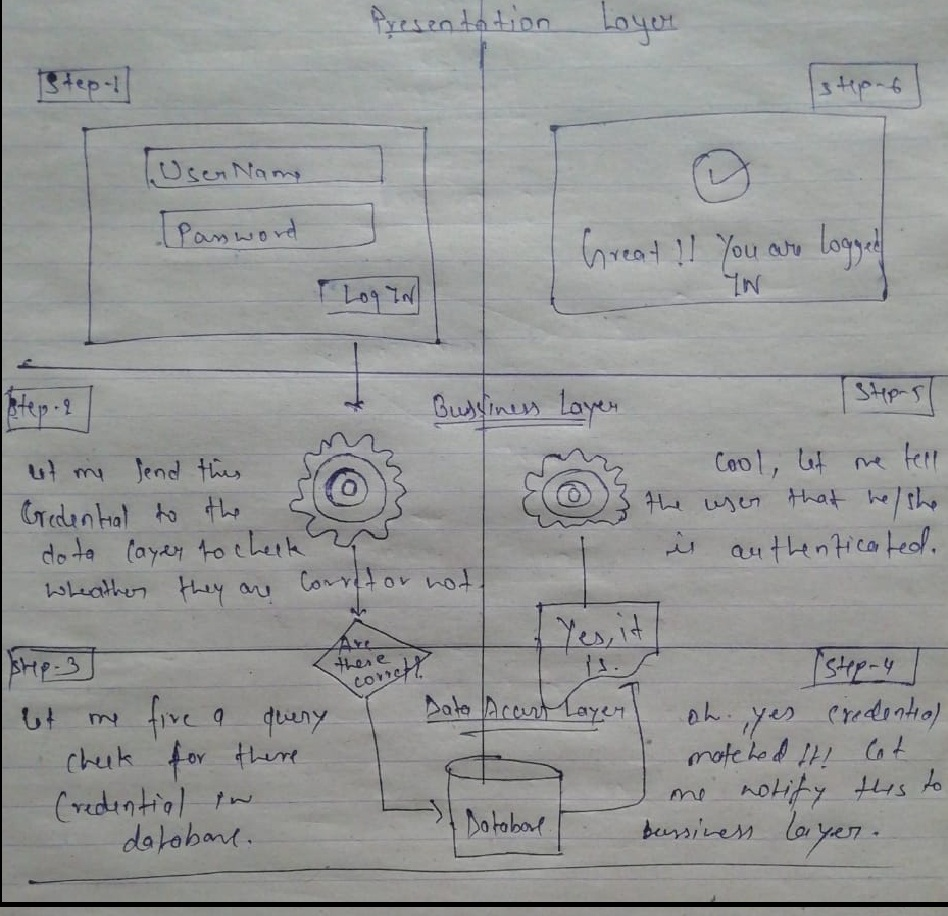 Presentation Layer
Step-1
UserName
Password
Log IN
Step-6
Great !! You are Logged
IN
Bussiness Layer
Step-2
Let me send this
Credential to the
data layer to check
wheather they are Corret or not
Step-5
Cool, let me tell
the user that he/she
is authenticated.
Are
these
corret?
Yes, it
is.
Data Access Layer
Step-3
Let me fire a query
check for there
Credential in
database.
Database
Step-4
oh. yes credential
matched!!! Let
me notify this to
bussiness layer.